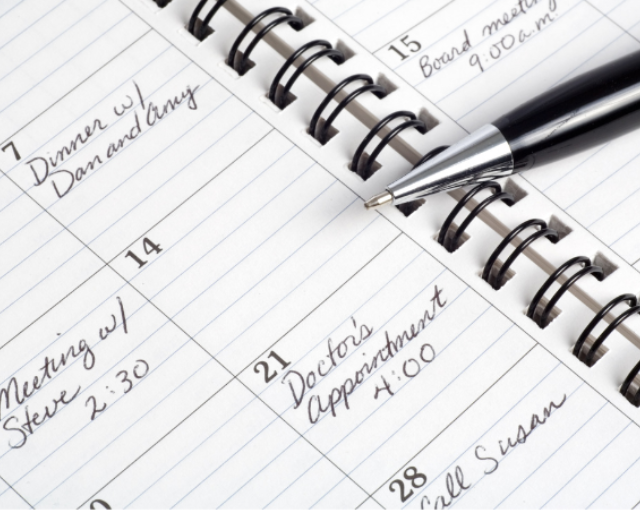 15
Board meeting
9:00 a.m.
7
Dinner w/
Dan and Amy
14
Meeting w/
Steve
2:30
21
Doctor's
Appointment
4:00
28
Call Susan